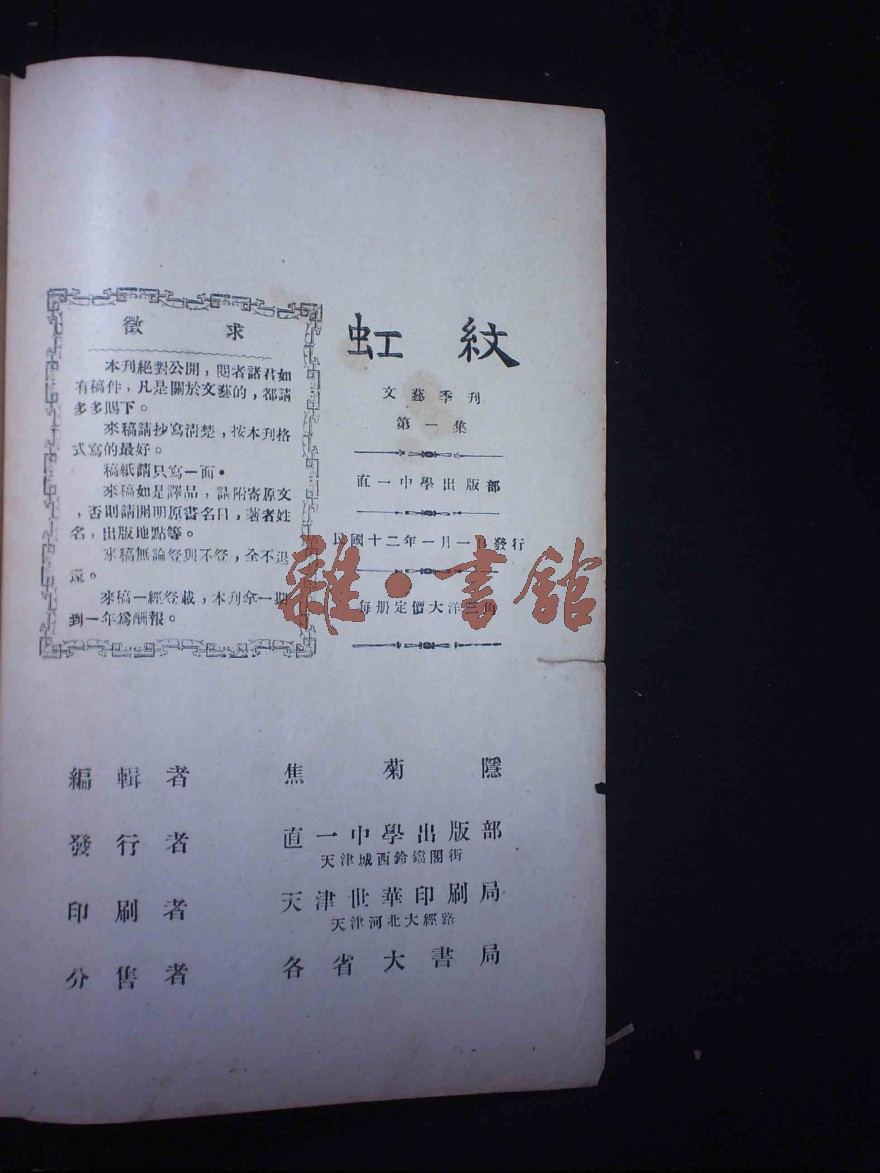 徵 求
本刊絕對公開,閱者諸君如
有稿件,凡是關於文藝的,都請
多多賜下。
來稿請抄寫清楚,按本刊格
式寫的最好。
稿紙請只寫一面。
來稿如是譯品,請附寄原文
,否則請開明原書名目,著者姓
名,出版地點等。
來稿無論登與不登,全不退
還。
來稿一經登載,本刊拿一期
到一年為酬報。
虹紋
文藝季刊
第一集
直一中學出版部
民國十二年一月一日發行
每册定價大洋角
雜·書館
編輯者 焦菊隱
發行者 直一中學出版部
天津城西鈴鐺閣街
印刷者 天津世華印刷局
天津河北大經路
分售者 各省大書局